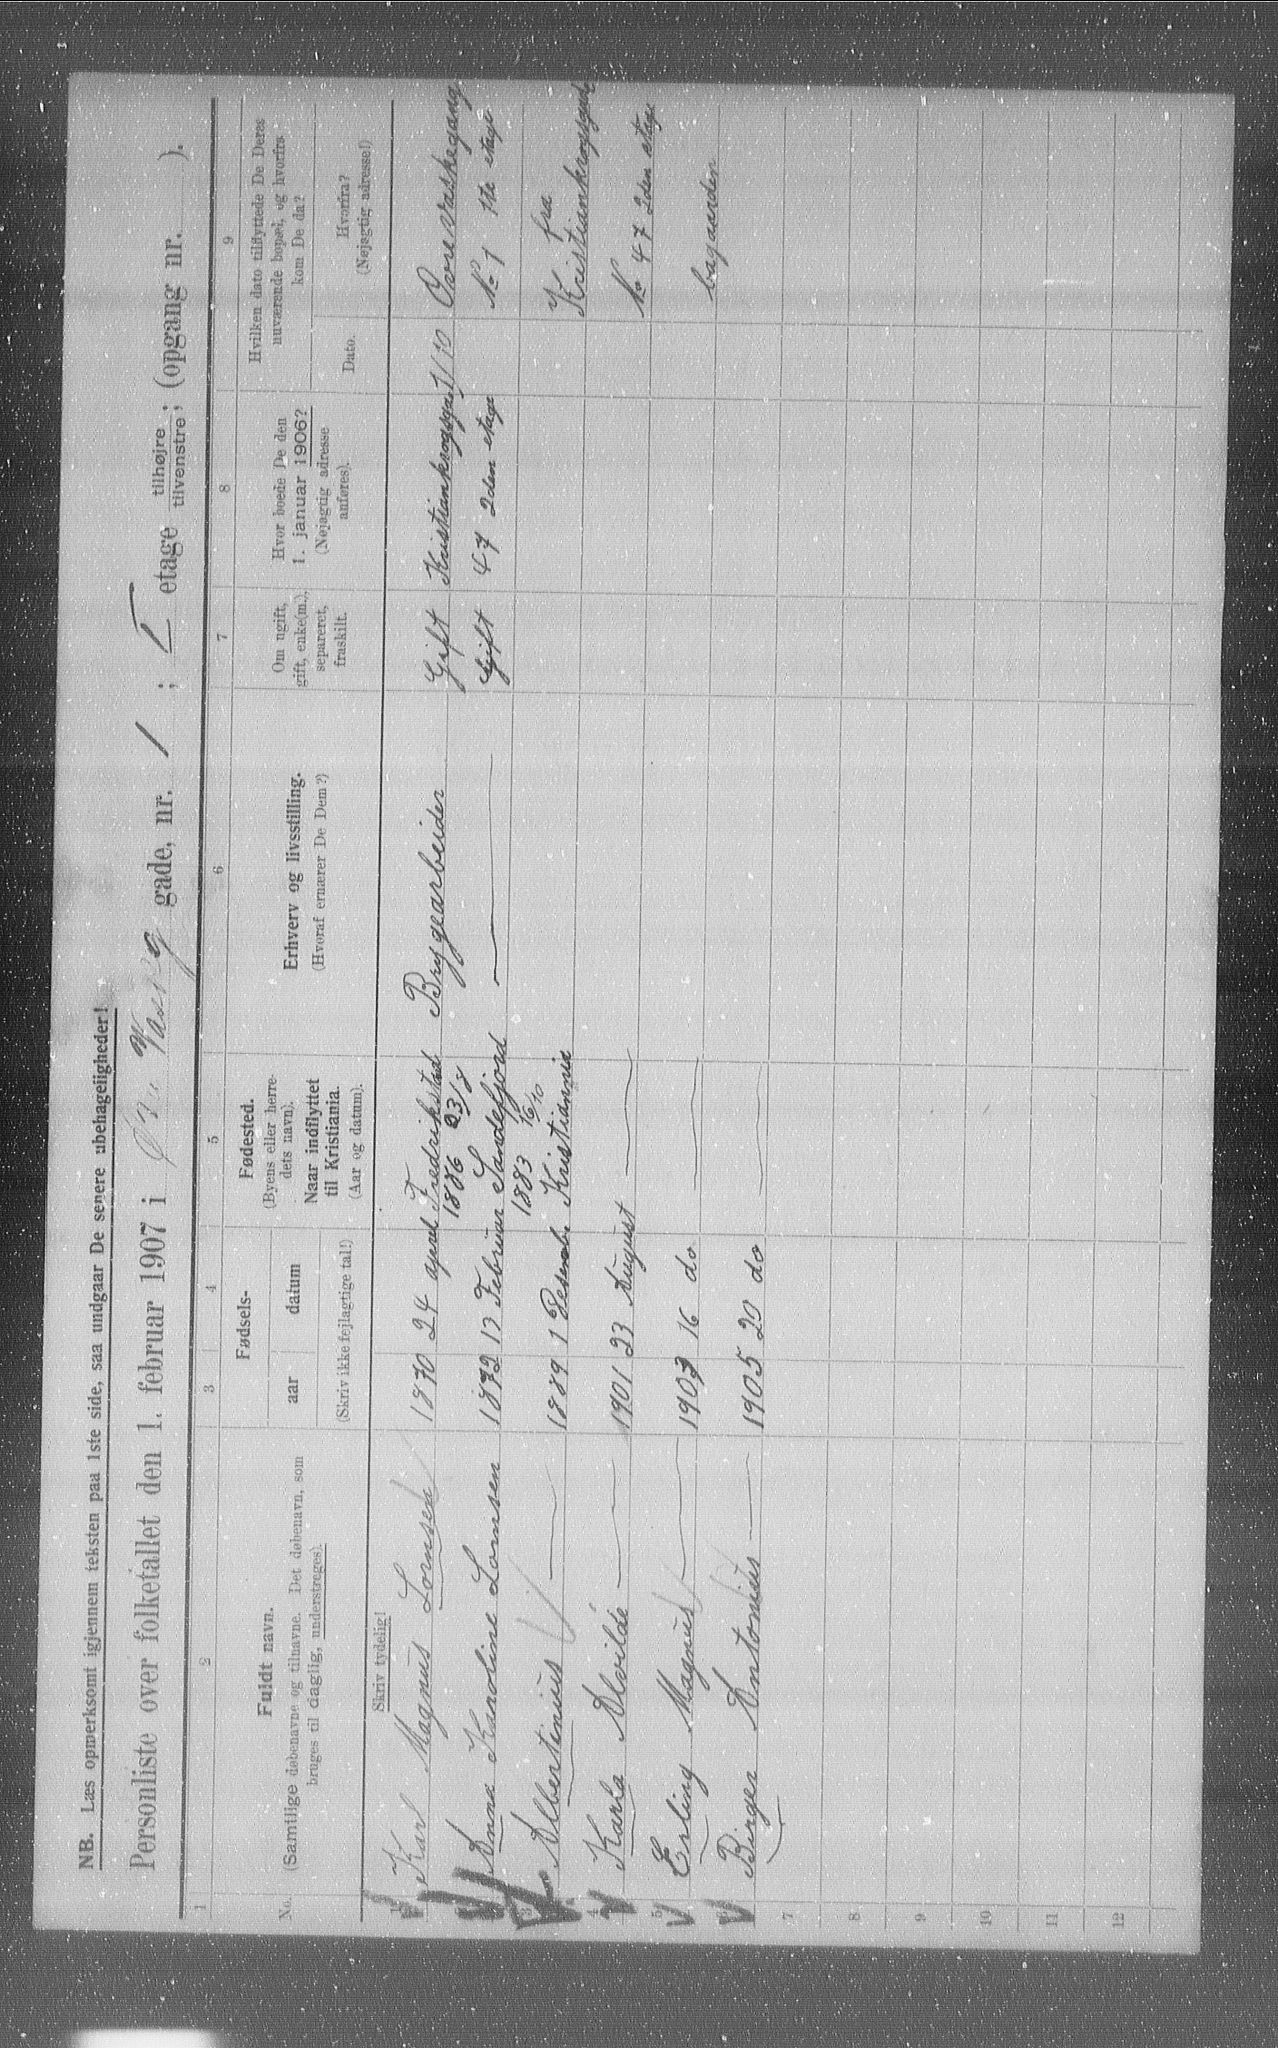 NB. Læs opmerksomt igjennem teksten paa 1ste side, saa undgaar De senere ubehageligheder!
Personliste over folketallet den 1. februar 1907 i Øvre Vaskeg gade, nr. 1 ; I etage tilhøjre tilvenstre; (opgang nr. ).
1 2 3 4 5 6 7 8 9
No.
Fuldt navn.
(Samtlige døbenavne og tilnavne. Det døbenavn, som
bruges til daglig, understreges).
Skriv tydelig!
Fødsels-
aar datum
(Skriv ikke fejlagtige tal!)
Fødested.
(Byens eller herre-
dets navn).
Naar indflyttet
til Kristiania.
(Aar og datum).
Erhverv og livsstilling.
(Hvoraf ernærer De Dem?)
Om ugift,
gift, enke(m.),
separeret,
fraskilt.
Hvor boede De den
1. januar 1906?
(Nøjagtig adresse
anføres).
Hvilken dato tilflyttede De Deres
nuværende bopæl, og hvorfra
kom De da?
Dato.
Hvorfra?
(Nøjagtig adresse!)
1 Karl Magnus Lornsen 1870 24 april Fredrikstad Bryggearbeider Gift Kristiankrogsgt 1/10 Øvre Vaskegang
1886 23/8
2 Anna Karoline Lornsen 1872 13 Februar Sandefjord — Gift 47 2den etage No 1 1ste etage
1883 16/10
3 Albertinius — 1889 1 Desemb. Kristiannia fra
Kristiankrogsgade
4 Karla Alvilde — 1901 23 August — No 47 2den etage
5 Erling Magnus — 1903 16 do —
bagaarden
6 Birger Antonius — 1905 20 do —
7
8
9
10
11
12